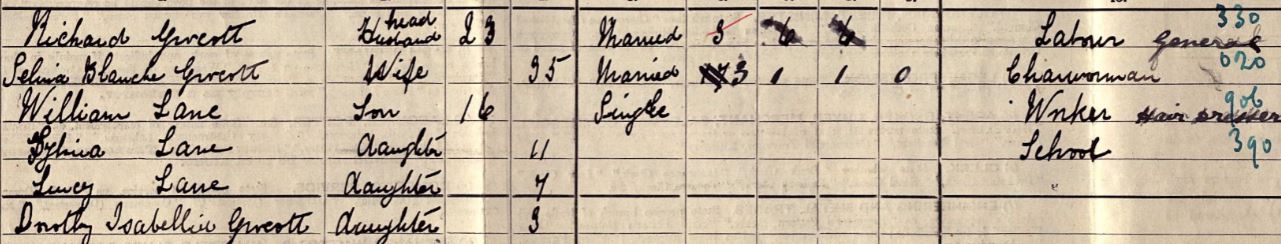 Richard Gwcott Husband head 23 Married 3 6 6 Labour General 330
Selina Blanche Gwcott Wife 35 Married 3 1 1 0 Charwoman 020
William Lane Son 16 Single Worker Hair Dresser 906
Sylvia Lane daughter 11 School 390
Lucy Lane daughter 7 "
Dorothy Isabellia Gwcott daughter 3